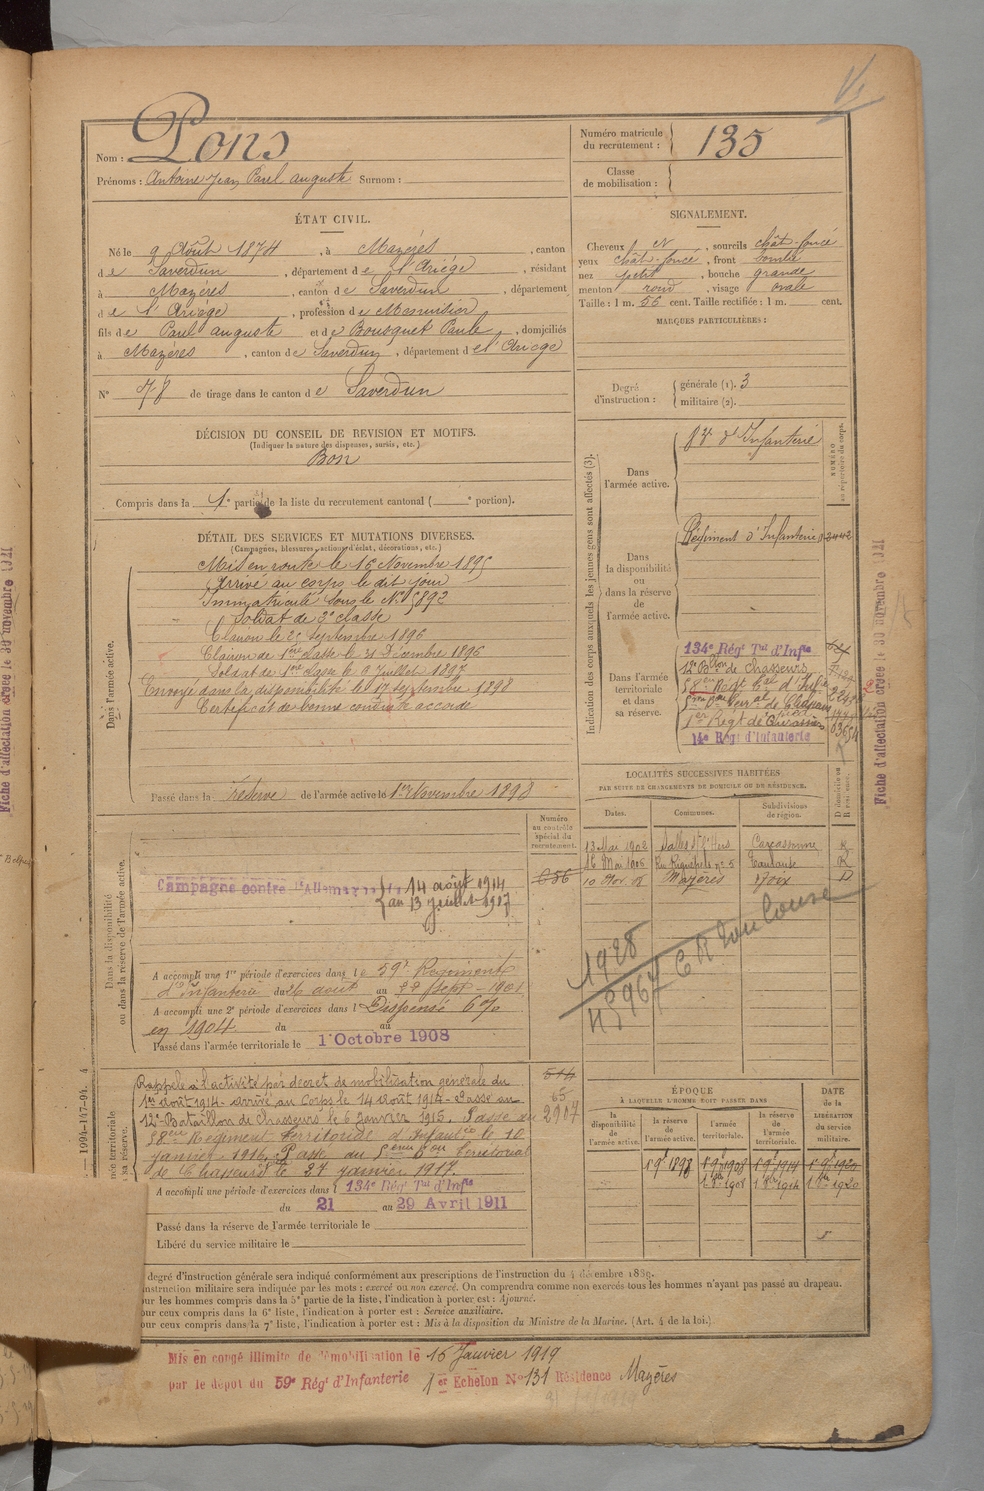 Nom : Pons
Prénoms : Antoine Jean Paul auguste Surnom :
Numéro matricule du recrutement : 135
Classe de mobilisation :
ÉTAT CIVIL.
Né le 9 Août 1874, à Mazéres, canton
de Saverdun, département de l'Ariége, résidant
à Mazéres, canton de Saverdun, département
de l'Ariége, profession de Menuisier
fils de Paul auguste et de Bousquet Paule, domiciliés
à Mazéres, canton de Saverdun, département de l'Ariege
N° 78 de tirage dans le canton de Saverdun
DÉCISION DU CONSEIL DE REVISION ET MOTIFS.
(Indiquer la nature des dispenses, sursis, etc.)
Bon
Compris dans la 1e partie de la liste du recrutement cantonal ( e portion).
SIGNALEMENT.
Cheveux N, sourcils chât-foncé
yeux chât-foncé, front bombé
nez petit, bouche grande
menton rond, visage ovale
Taille : 1 m. 56 cent. Taille rectifiée : 1 m. cent.
MARQUES PARTICULIÈRES :
Degré d'instruction : générale (1). 3
militaire (2).
DÉTAIL DES SERVICES ET MUTATIONS DIVERSES.
(Campagnes, blessures, actions d'éclat, décorations, etc.)
Dans l'armée active.
Mis en route le 16 Novembre 1895
Arrivé au corps le dit jour
Immatriculé sous le N° 5892
Soldat de 2e classe
Clairon le 25 Septembre 1896
Clairon de 1ère classe le 31 Décembre 1896
Soldat de 1ère classe le 9 Juillet 1897
Envoyé dans la disponibilité le 17 septembre 1898
Certificat de bonne conduite accordé
Passé dans la réserve de l'armée active le 1er Novembre 1898
Indication des corps auxquels les jeunes gens sont affectés (3).
NUMÉRO au répertoire du corps.
Dans l'armée active.
d'Infanterie
Dans la disponibilité ou dans la réserve de l'armée active.
Régiment d'Infanterie
Dans l'armée territoriale et dans sa réserve.
134e Régt Tal d'Infie
12e Bllon de Chasseurs
14e Régt d'Infanterie
LOCALITÉS SUCCESSIVES HABITÉES
PAR SUITE DE CHANGEMENTS DE DOMICILE OU DE RÉSIDENCE.
Dates. Communes. Subdivisions de région.
13 Mai 1902 Salles s/ l'Hers Carcassonne R
Toulouse R
Mazères Foix D
1928
C R Toulouse
Numéro au contrôle spécial du recrutement.
656
Dans la disponibilité ou dans la réserve de l'armée active.
Campagne contre l'Allemagne du 14 août 1914
au 13 Juillet 1917
A accompli une 1re période d'exercices dans le 59e Régiment
d'Infanterie du 26 août au 22 Sept - 1901
A accompli une 2e période d'exercices dans l Dispensé 6%
en 1904 du au
Passé dans l'armée territoriale le 1 Octobre 1908
Rappelé à l'activité par décret de mobilisation générale du
1er Août 1914 - arrivé au Corps le 14 août 1914 - Passé au
12e Bataillon de Chasseurs le 6 Janvier 1915. Passé au
Régiment Territorial d'Infanterie le 10
janvier 1916. Passé au territorial
de Chasseurs le 27 janvier 1917.
A accompli une période d'exercices dans l 134e Régt Tal d'Infie
du 21 au 29 Avril 1911
Passé dans la réserve de l'armée territoriale le
Libéré du service militaire le
2907
ÉPOQUE
À LAQUELLE L'HOMME DOIT PASSER DANS
la disponibilité de l'armée active. la réserve de l'armée active. l'armée territoriale. la réserve de l'armée territoriale.
DATE de la LIBÉRATION du service militaire.
degré d'instruction générale sera indiqué conformément aux prescriptions de l'instruction du 4 décembre 1889.
nstruction militaire sera indiquée par les mots : exercé ou non exercé. On comprendra comme non exercés tous les hommes n'ayant pas passé au drapeau.
our les hommes compris dans la 5e partie de la liste, l'indication à porter est : Ajourné.
our ceux compris dans la 6e liste, l'indication à porter est : Service auxiliaire.
our ceux compris dans la 7e liste, l'indication à porter est : Mis à la disposition du Ministre de la Marine. (Art. 4 de la loi.)
Mis en congé illimité de démobilisation le 16 Janvier 1919
par le dépôt du 59e Régt d'Infanterie 1er Echelon N° 131 Résidence Mazères
Fiche d'affectation créée le 30 novembre 1921
Fiche d'affectation créée le 30 novembre 1921